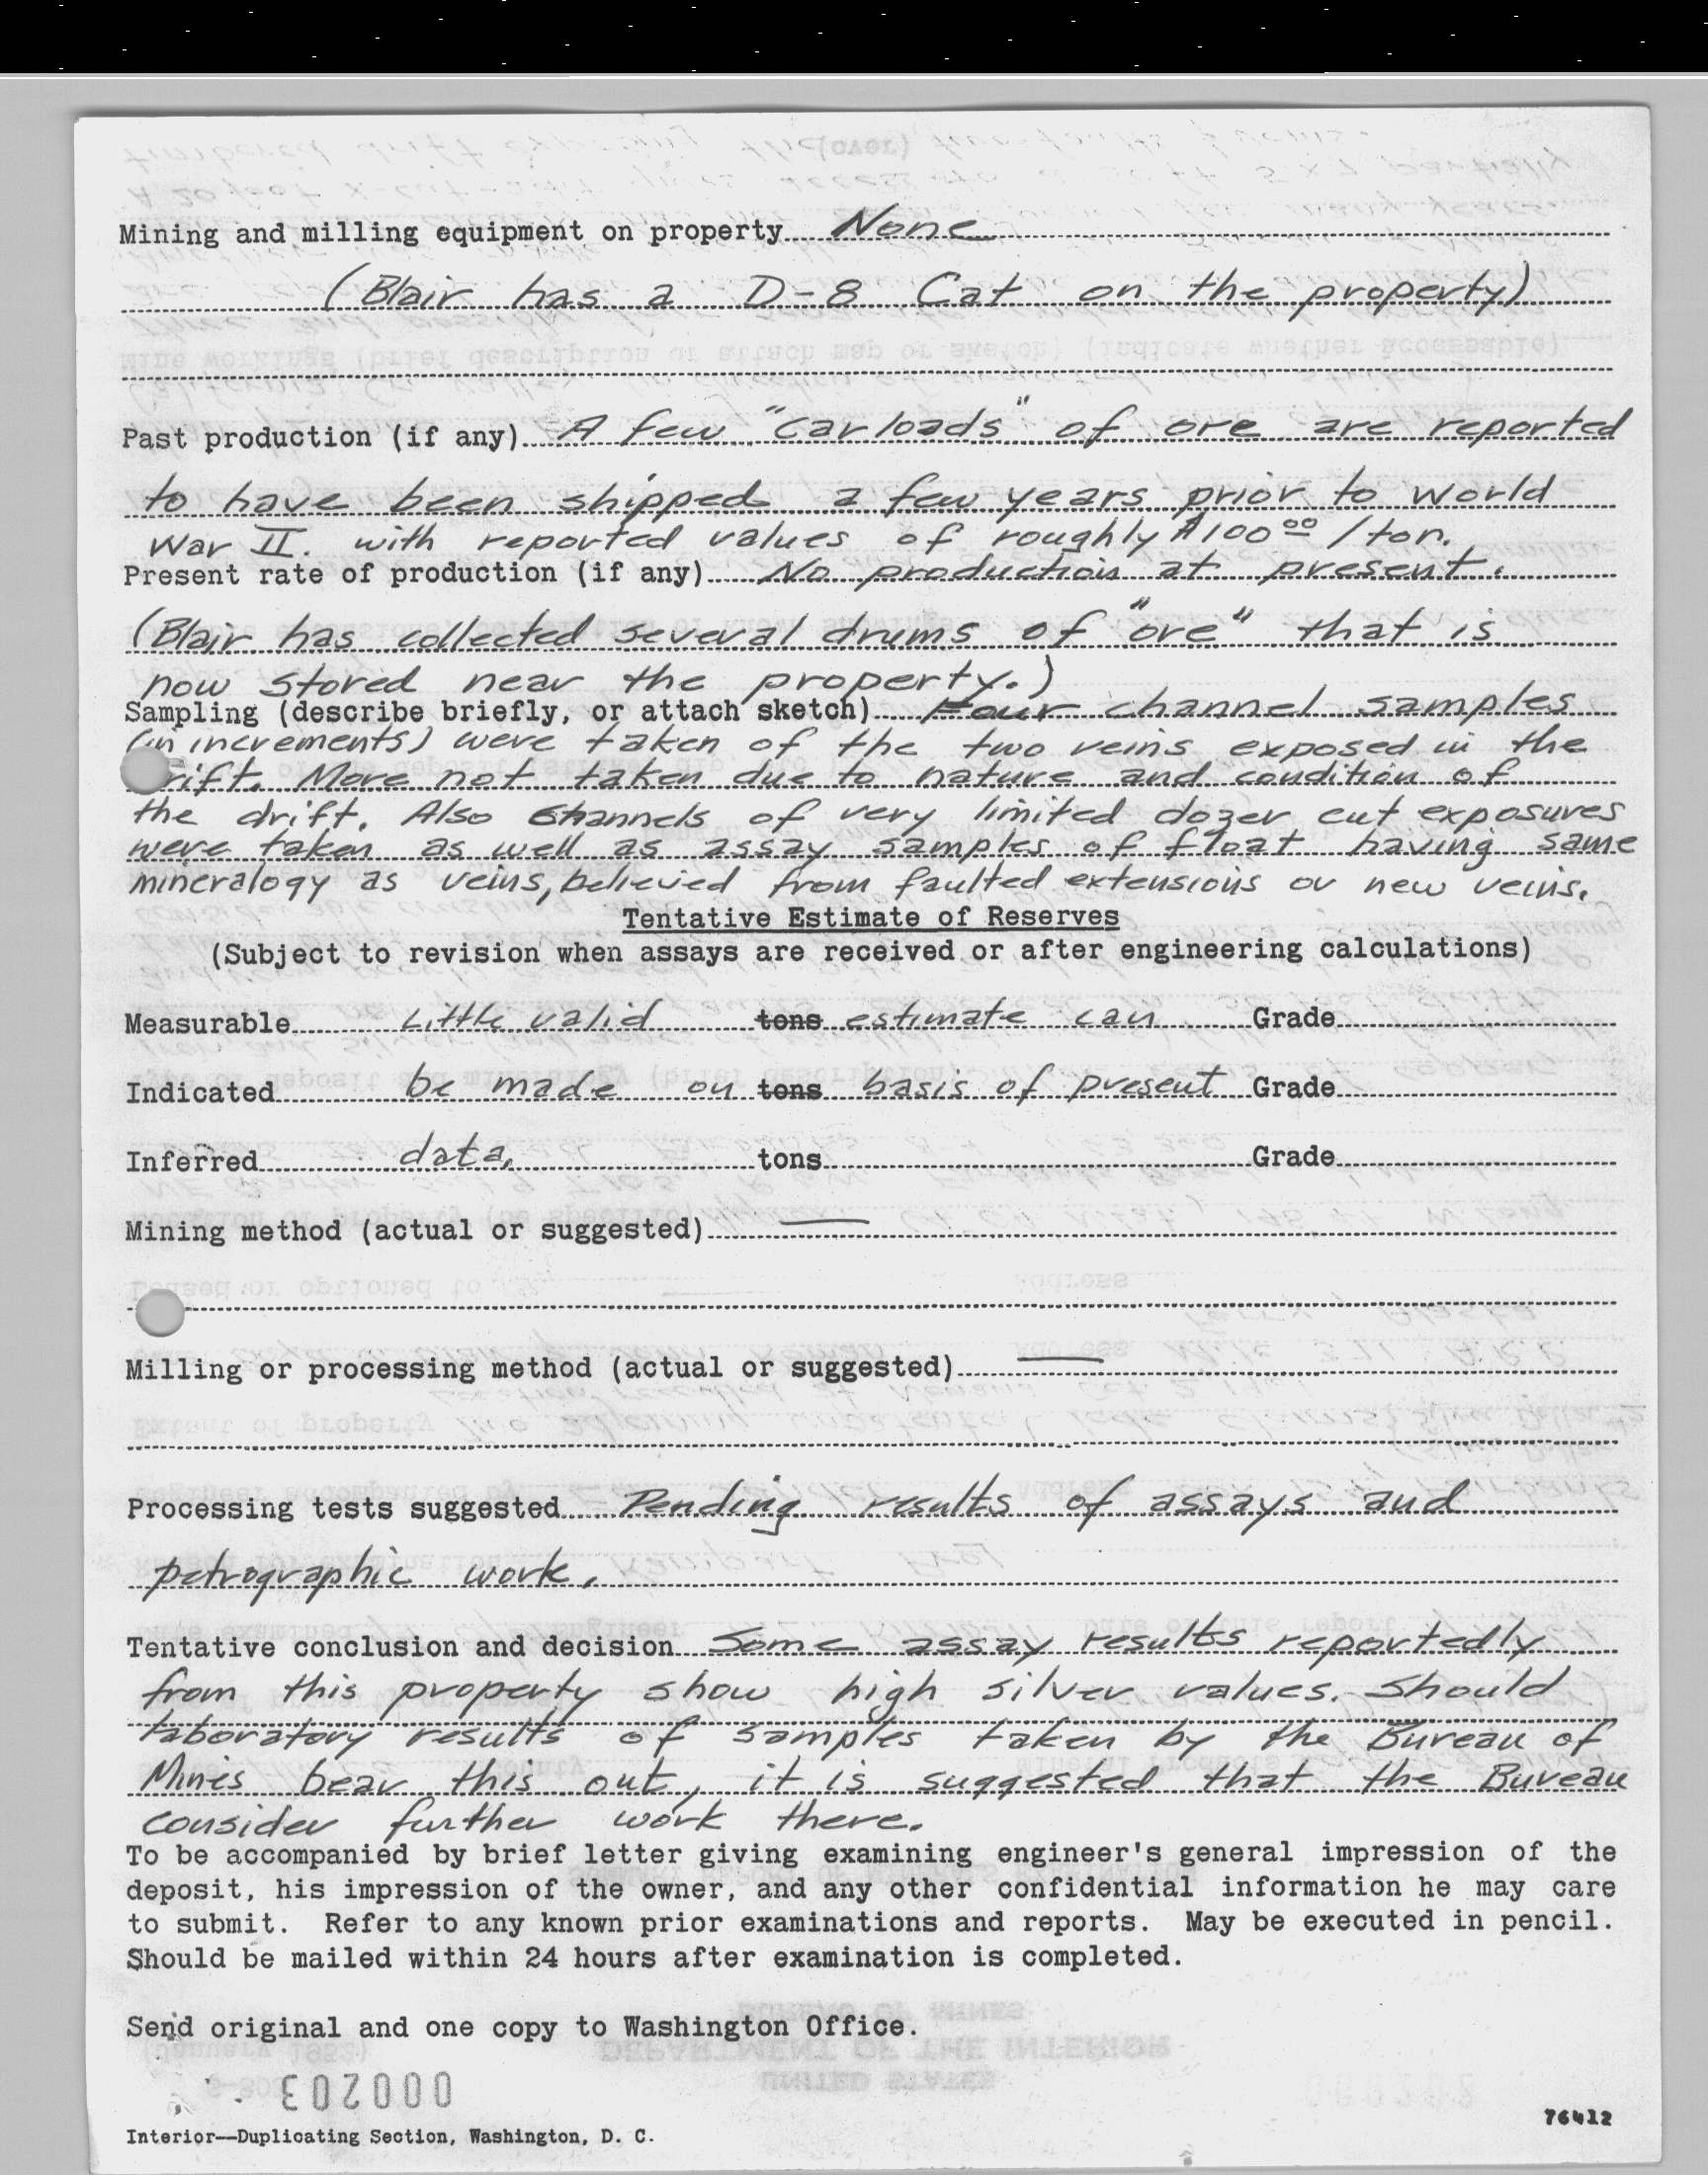 Mining and milling equipment on property None
(Blair has a D-8 Cat on the property)
Past production (if any) A few "carloads" of ore are reported
to have been shipped a few years prior to World
War II. with reported values of roughly $100.00 /ton.
Present rate of production (if any) No production at present.
(Blair has collected several drums of "ore" that is
now stored near the property.)
Sampling (describe briefly, or attach sketch) Four channel samples
(in increments) were taken of the two veins exposed in the
drift. More not taken due to nature and condition of
the drift. Also channels of very limited dozer cut exposures
were taken as well as assay samples of float having same
mineralogy as veins, believed from faulted extensions or new veins.
Tentative Estimate of Reserves
(Subject to revision when assays are received or after engineering calculations)
Measurable Little valid tons estimate can Grade
Indicated be made on tons basis of present Grade
Inferred data. tons Grade
Mining method (actual or suggested) —
Milling or processing method (actual or suggested) —
Processing tests suggested Pending results of assays and
petrographic work.
Tentative conclusion and decision Some assay results reportedly
from this property show high silver values. Should
laboratory results of samples taken by the Bureau of
Mines bear this out, it is suggested that the Bureau
consider further work there.
To be accompanied by brief letter giving examining engineer's general impression of the
deposit, his impression of the owner, and any other confidential information he may care
to submit. Refer to any known prior examinations and reports. May be executed in pencil.
Should be mailed within 24 hours after examination is completed.
Send original and one copy to Washington Office.
000203
Interior—Duplicating Section, Washington, D. C.
76412